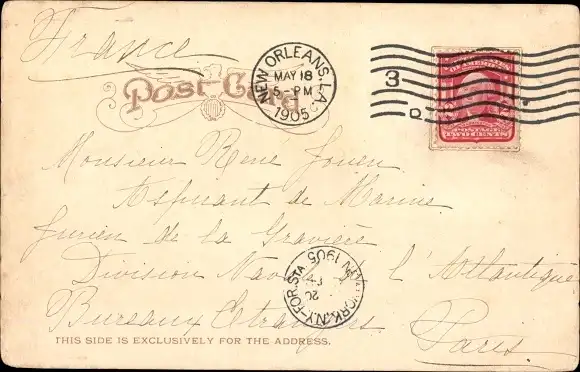 France
Post Card
NEW ORLEANS, LA.
MAY 18
5-PM
1905
3
D
TWO CENTS
Monsieur René Jouen
Aspirant de Marine
Jurien de la Gravière
Division Nav l'Atlantique
Bureaux Etrangers Paris
NEW YORK, N.Y. FOR. STA.
20
1905
THIS SIDE IS EXCLUSIVELY FOR THE ADDRESS.